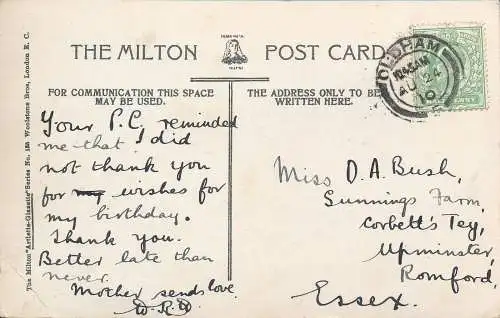 THE MILTON POST CARD
FOR COMMUNICATION THIS SPACE
MAY BE USED.
THE ADDRESS ONLY TO BE
WRITTEN HERE.
The Milton "Artlette-Glazette" Series No. 155 Woolstone Bros, London E.C.
OLDHAM
AU 24
10
Your P.C. reminded
me that I did
not thank you
for my wishes for
my birthday.
Thank you.
Better late than
never.
Mother sends love.
Miss D. A. Bush,
Sunnings Farm,
Corbett's Tey,
Upminster,
Romford,
Essex.